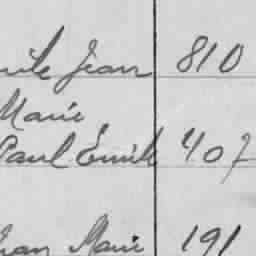 Jean 810
Marie
Paul Emile 407
Marie 191